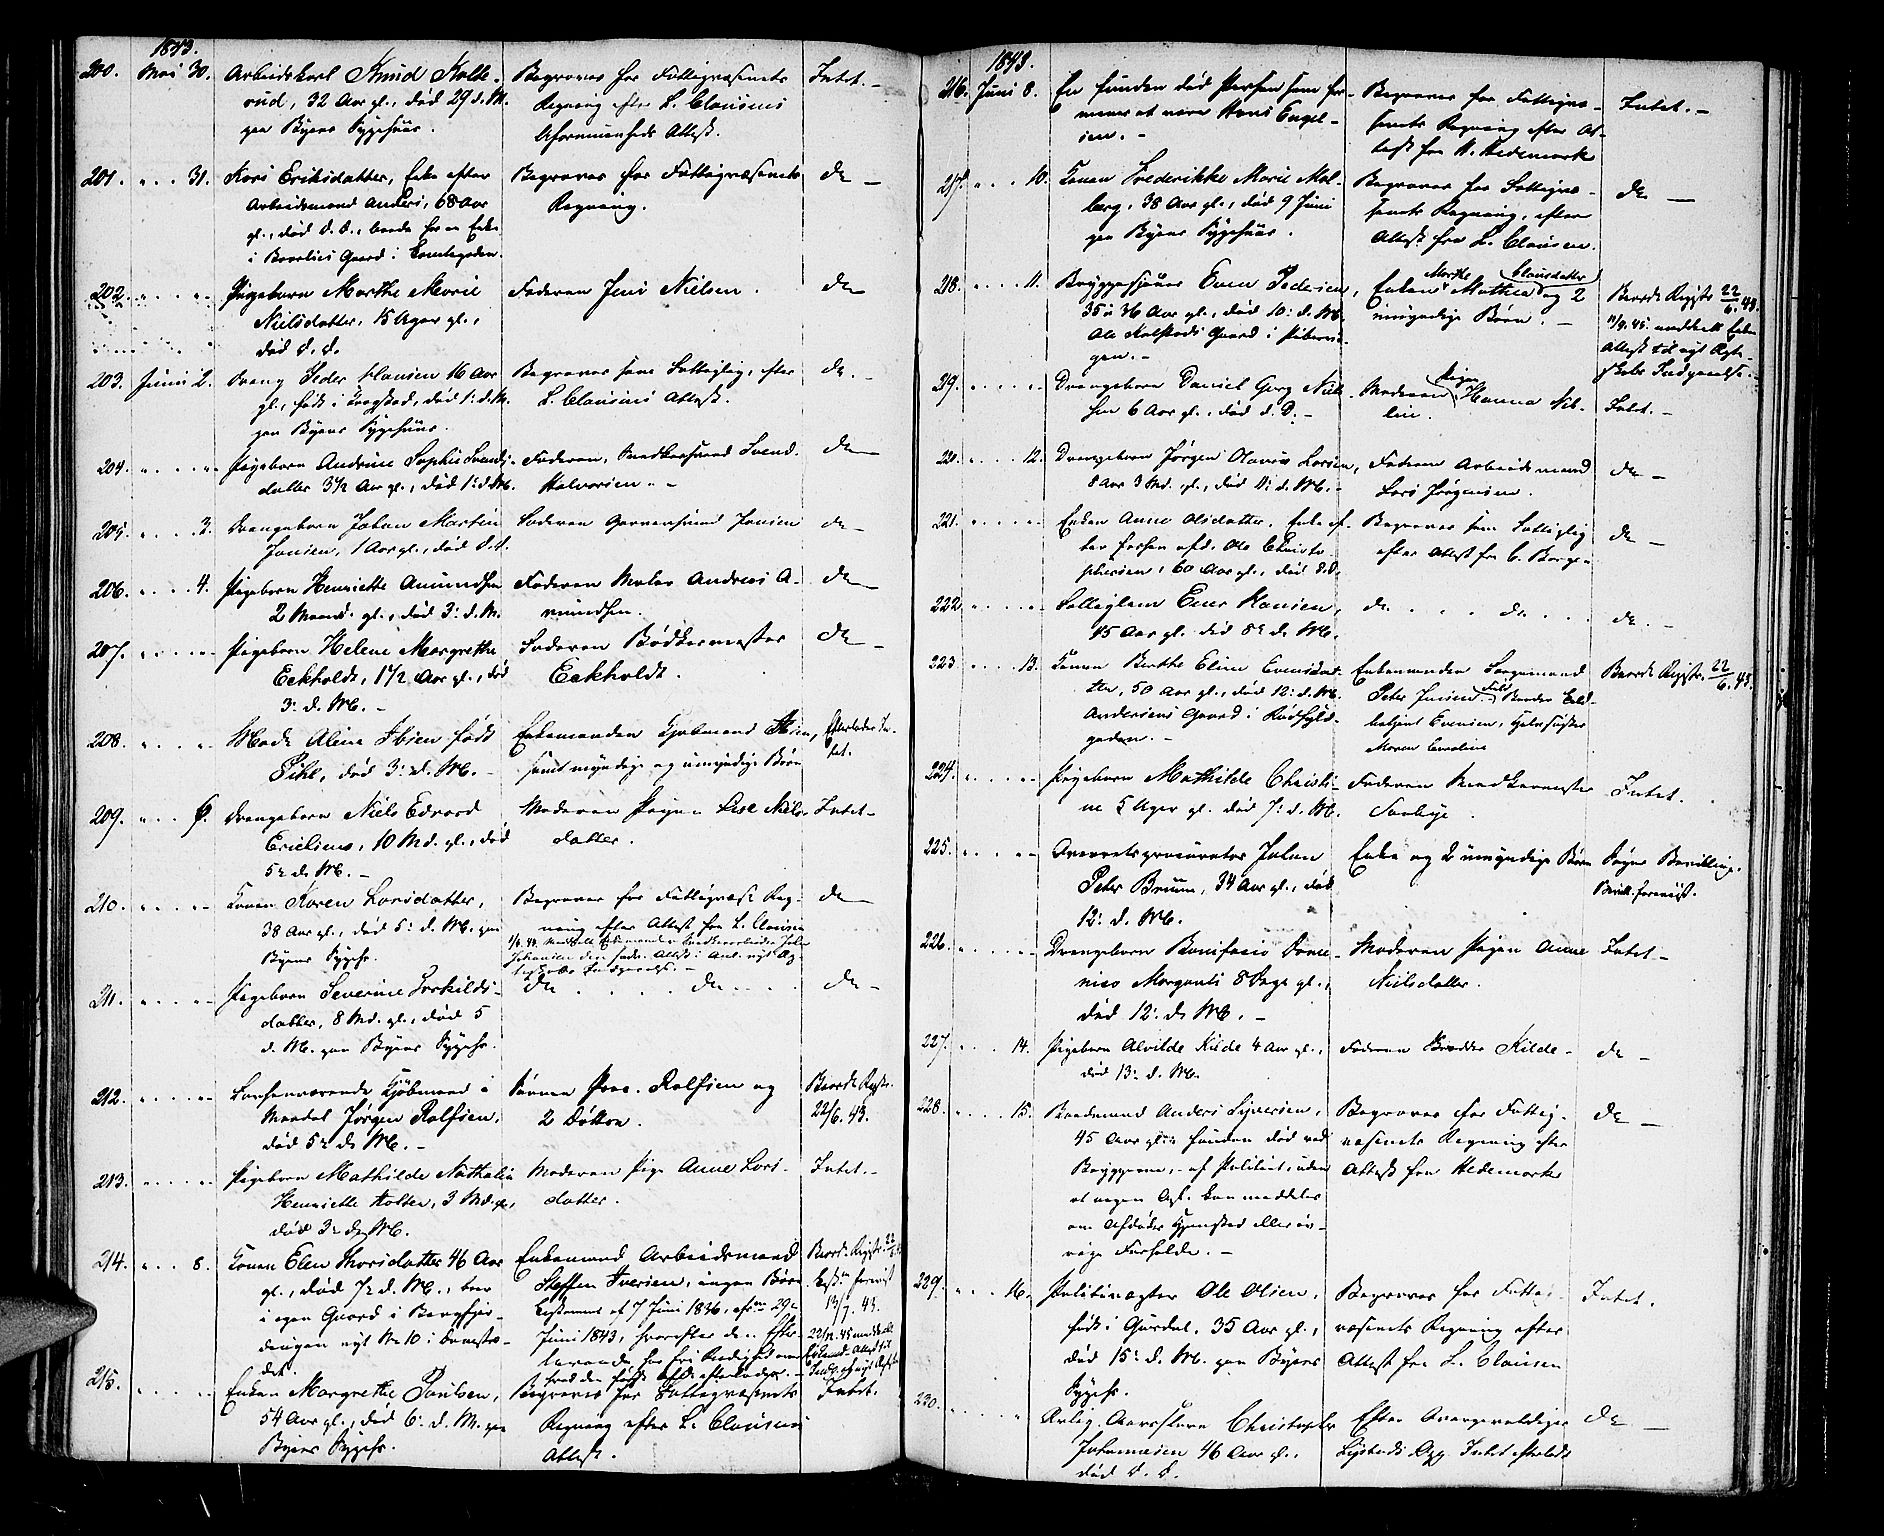 1843.
200. Mai 30. Arbeidskarl Knud Kolte-
rud, 32 Aar gl., død 29 d. M.
paa Byens Sygehuus.
Begraves for Fattigvæsenets
Regning efter L. Clausens
Uformuenheds Attest.
Intet. –
201. " . . . 31. Kari Eriksdatter, Enke efter
Arbeidsmand Anders, 68 Aar
gl., død d. D., boede hos en Enke
i Gaard i Tomtegaden.
Begraves for Fattigvæsenets
Regning.
do –
202. " . . . " Pigebarn Marthe Marie
Nielsdatter, 15 Uger gl.,
død d. d.
Faderen Jens Nielsen.
do –
203. Juni 2. Dreng Peder Hansen 16 Aar
gl., født i Krogstad, død 1: d. M.
paa Byens Sygehuus.
Begraves som Fattiglig, efter
L. Clausens Attest.
do. –
204. " . . . " Pigebarn Andrine Sophie Svends-
datter 3½ Aar gl., død 1: d. M.
Faderen, Snedkersvend Svend
Halvorsen. –
do –
205. " . . . 3. Drengebarn Johan Martin
Jansen, 1 Aar gl., død d. d.
Faderen Garversvend Jansen
do –
206. " . . . 4. Pigebarn Henriette Amundsen
2 Maand. gl., død 3: d. M.
Faderen Maler Andreas A-
mundsen.
do –
207. " . . . " Pigebarn Helene Margrethe
Eckholdt, 1½ Aar gl., død
3: d. M. –
Faderen Bødkermester
Eckholdt.
do –
208. " . . . " Mad. Aline Ibsen født
Pihl, død 3: d. M. –
Enkemanden Kjøbmand Ibsen,
samt myndige og umyndige Børn
Efterlader In-
tet.
209. " . . . 6. Drengebarn Niels Edvard
Ericksen, 10 Md. gl., død
5: d. M. –
Moderen Pigen Lise Niels-
datter.
Intet –
210. " . . . " Konen Karen Larsdatter,
38 Aar gl., død 5: d. M. paa
Byens Sygehs.
Begraves for Fattigvæs: Reg-
ning efter Attest fra L. Clausen
do –
211. " . . . " Pigebarn Severine Torkilds-
datter, 8 Md. gl., død 5
d. M. paa Byens Sygehs.
do . . . . do . . . .
do –
212. " . . . " Forhenværende Kjøbmand i
Mandal Jørgen Rolfsen,
død 5: d. M. –
Sønnen Proc. Rolfsen og
2 Døttre.
Beordr. Registr.
22/6. 43.
213. " . . . " Pigebarn Mathilde Nathalia
Henriette Holter, 3 Md. gl.,
død 3: d. M.
Moderen Pige Anne Lars-
datter.
Intet. –
214. " . . . 8. Konen Elen Thorsdatter 46 Aar
gl., død 7: d. M., boer
i egen Gaard i Bergfjer-
dingen nyt No 10 i
Enkemand Arbeidsmand
Steffen Iversen, ingen Børn
Testament af 7 Juni 1836, 29
Juni 1843, hvorefter den Efter-
levende har fri Raadighed over
Beordr. Registr. 22/6 43.
13/7. 43.
215. " . . . " Enken Margrethe Paulsen,
54 Aar gl., død 6: d. M. paa
Byens Sygehs.
Begraves for Fattigvæsenets
Regning efter L. Clausens
Attest.
Intet.
1843.
216. Juni 8. En funden død Person som for-
menes at være Hans Engel-
sen. –
Begraves for Fattigvæ-
senets Regning efter At-
test fra N. Hedemark
Intet. –
217. " . . . 10. Konen Frederikke Marie Mal-
berg, 38 Aar gl., død 9 Juni
paa Byens Sygehuus.
Begraves for Fattigvæ-
senets Regning, efter
Attest fra L. Clausen.
do –
218. " . . . 11. Bryggesjouer Even Pedersen,
35 à 36 Aar gl., død 10: d. M.
Ole Kolstads Gaard i Pibervi-
gen. –
Enken Marthe Mathea Clausdatter og 2
umyndige Børn. –
Beordr. Registr. 22/6. 43.
219. " . . . " Drengebarn Daniel Georg Niel-
sen 6 Aar gl., død d. D. –
Moderen Pigen Hanna Nil-
sen.
Intet. –
220. " . . . 12. Drengebarn Jørgen Olavus Larsen,
8 Aar 3 Md. gl., død 11: d. M. –
Faderen Arbeidsmand
Lars Jørgensen.
do –
221. " . . . " Enken Anne Olsdatter, Enke ef-
ter forhen afd. Ole Christo-
phersen, 60 Aar gl., død d. D.
Begraves som Fattiglig
efter Attest fra C. Borge –
do –
222. " . . . " Fattiglem Ener Hansen,
15 Aar gl. død 8: d. M.
do. . . . do. . . .
do. –
223 " . . . 13. Konen Berthe Eline Evensdat-
ter, 50 Aar gl., død 12: d. M.
Andersens Gaard i Rødfyld-
gaden. –
Enkemanden
Peter Jensen,
Evensen, Halvsøster
Maren Caroline
Beordr. Registr. 22/6. 43.
224. " . . . " Pigebarn Mathilde Christi-
ne 5 Uger gl. død 7: d. M.
Faderen Snedkermester
Saxlye.
Intet.
225. " . . . " Overretsprocurator Johan
Peter Bruun, 34 Aar gl., død
12: d. M.
Enke og 2 umyndige Børn
Søger Bevilling.
Bevill. foreviist.
226. " . . . " Drengebarn Bonifacio Dome-
nico Morganti 8 Dage gl.,
død 12: d. M. –
Moderen Pigen Anne
Nielsdatter.
Intet –
227. " . . . 14. Pigebarn Alvilde Kilde 4 Aar gl.,
død 13: d. M.
Faderen Kilde –
do –
228. " . . . 15. Baadsmand Anders Syversen,
45 Aar gl., funden død ved
Bryggerne, – af Politiet, uden
at nogen Opl. kan meddeles
om Afdødes Hjemsted eller øv-
rige Forholde. –
Begraves for Fattig-
væsenets Regning efter
Attest fra Hedemark
do –
229. " . . . 16. Politivægter Ole Olsen,
født i Guldal, 35 Aar gl.,
død 15: d. M. paa Byens
Sygehs.
Begraves for Fattig-
væsenets Regning efter
Attest fra L. Clausen
Intet.
230. " . . . " Christopher
Johannesen 46 Aar gl.,
død d. D.
Efter
Opg. Intet efterladt
do –